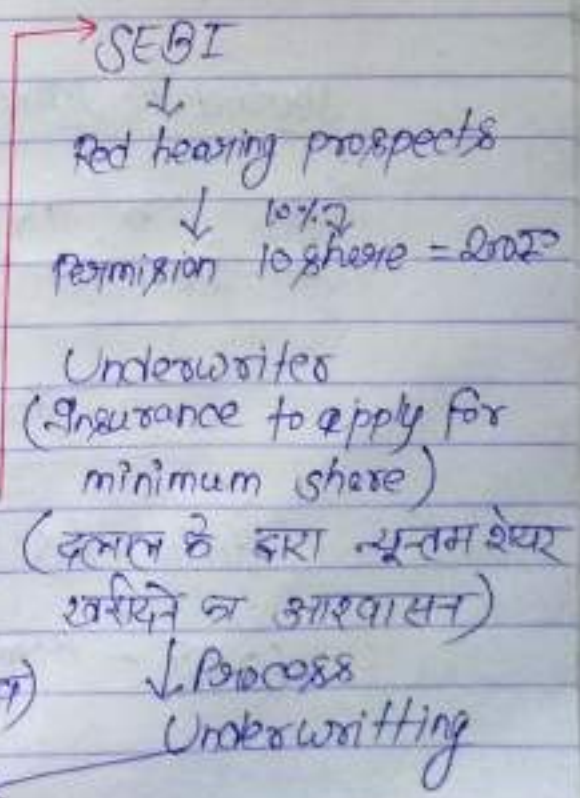 SEBI
↓
Red hearing prospects
↓ 10%
Permision 10 share = 200₹
Underwriter
(Insurance to apply for
minimum share)
(दलाल के द्वारा न्यूनतम शेयर
खरीदने का आश्वासन)
↓ Process
Underwritting